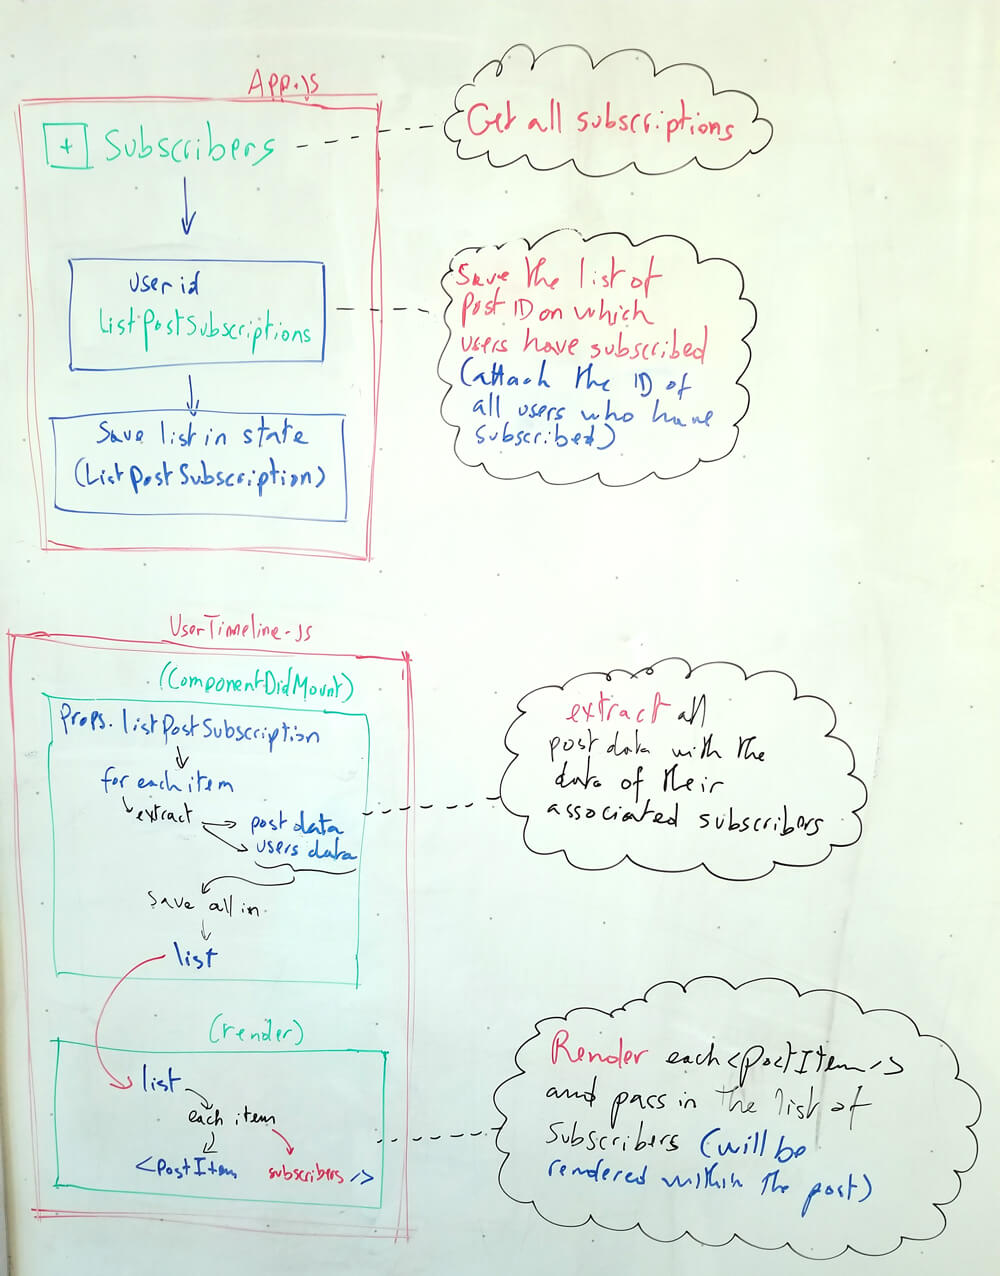 App.js
+ Subscribers
Get all subscriptions
user id
listPostSubscriptions
Save the list of
post ID on which
users have subscribed
(attach the ID of
all users who have
subscribed)
Save list in state
(ListPostSubscription)
UserTimeline.js
(ComponentDidMount)
Props.listPostSubscription
for each item
extract
post data
users data
save all in
list
extract all
post data with the
data of their
associated subscribers
(render)
list
each item
<PostItem subscribers />
Render each <PostItem />
and pass in the list of
Subscribers (will be
rendered within the post)